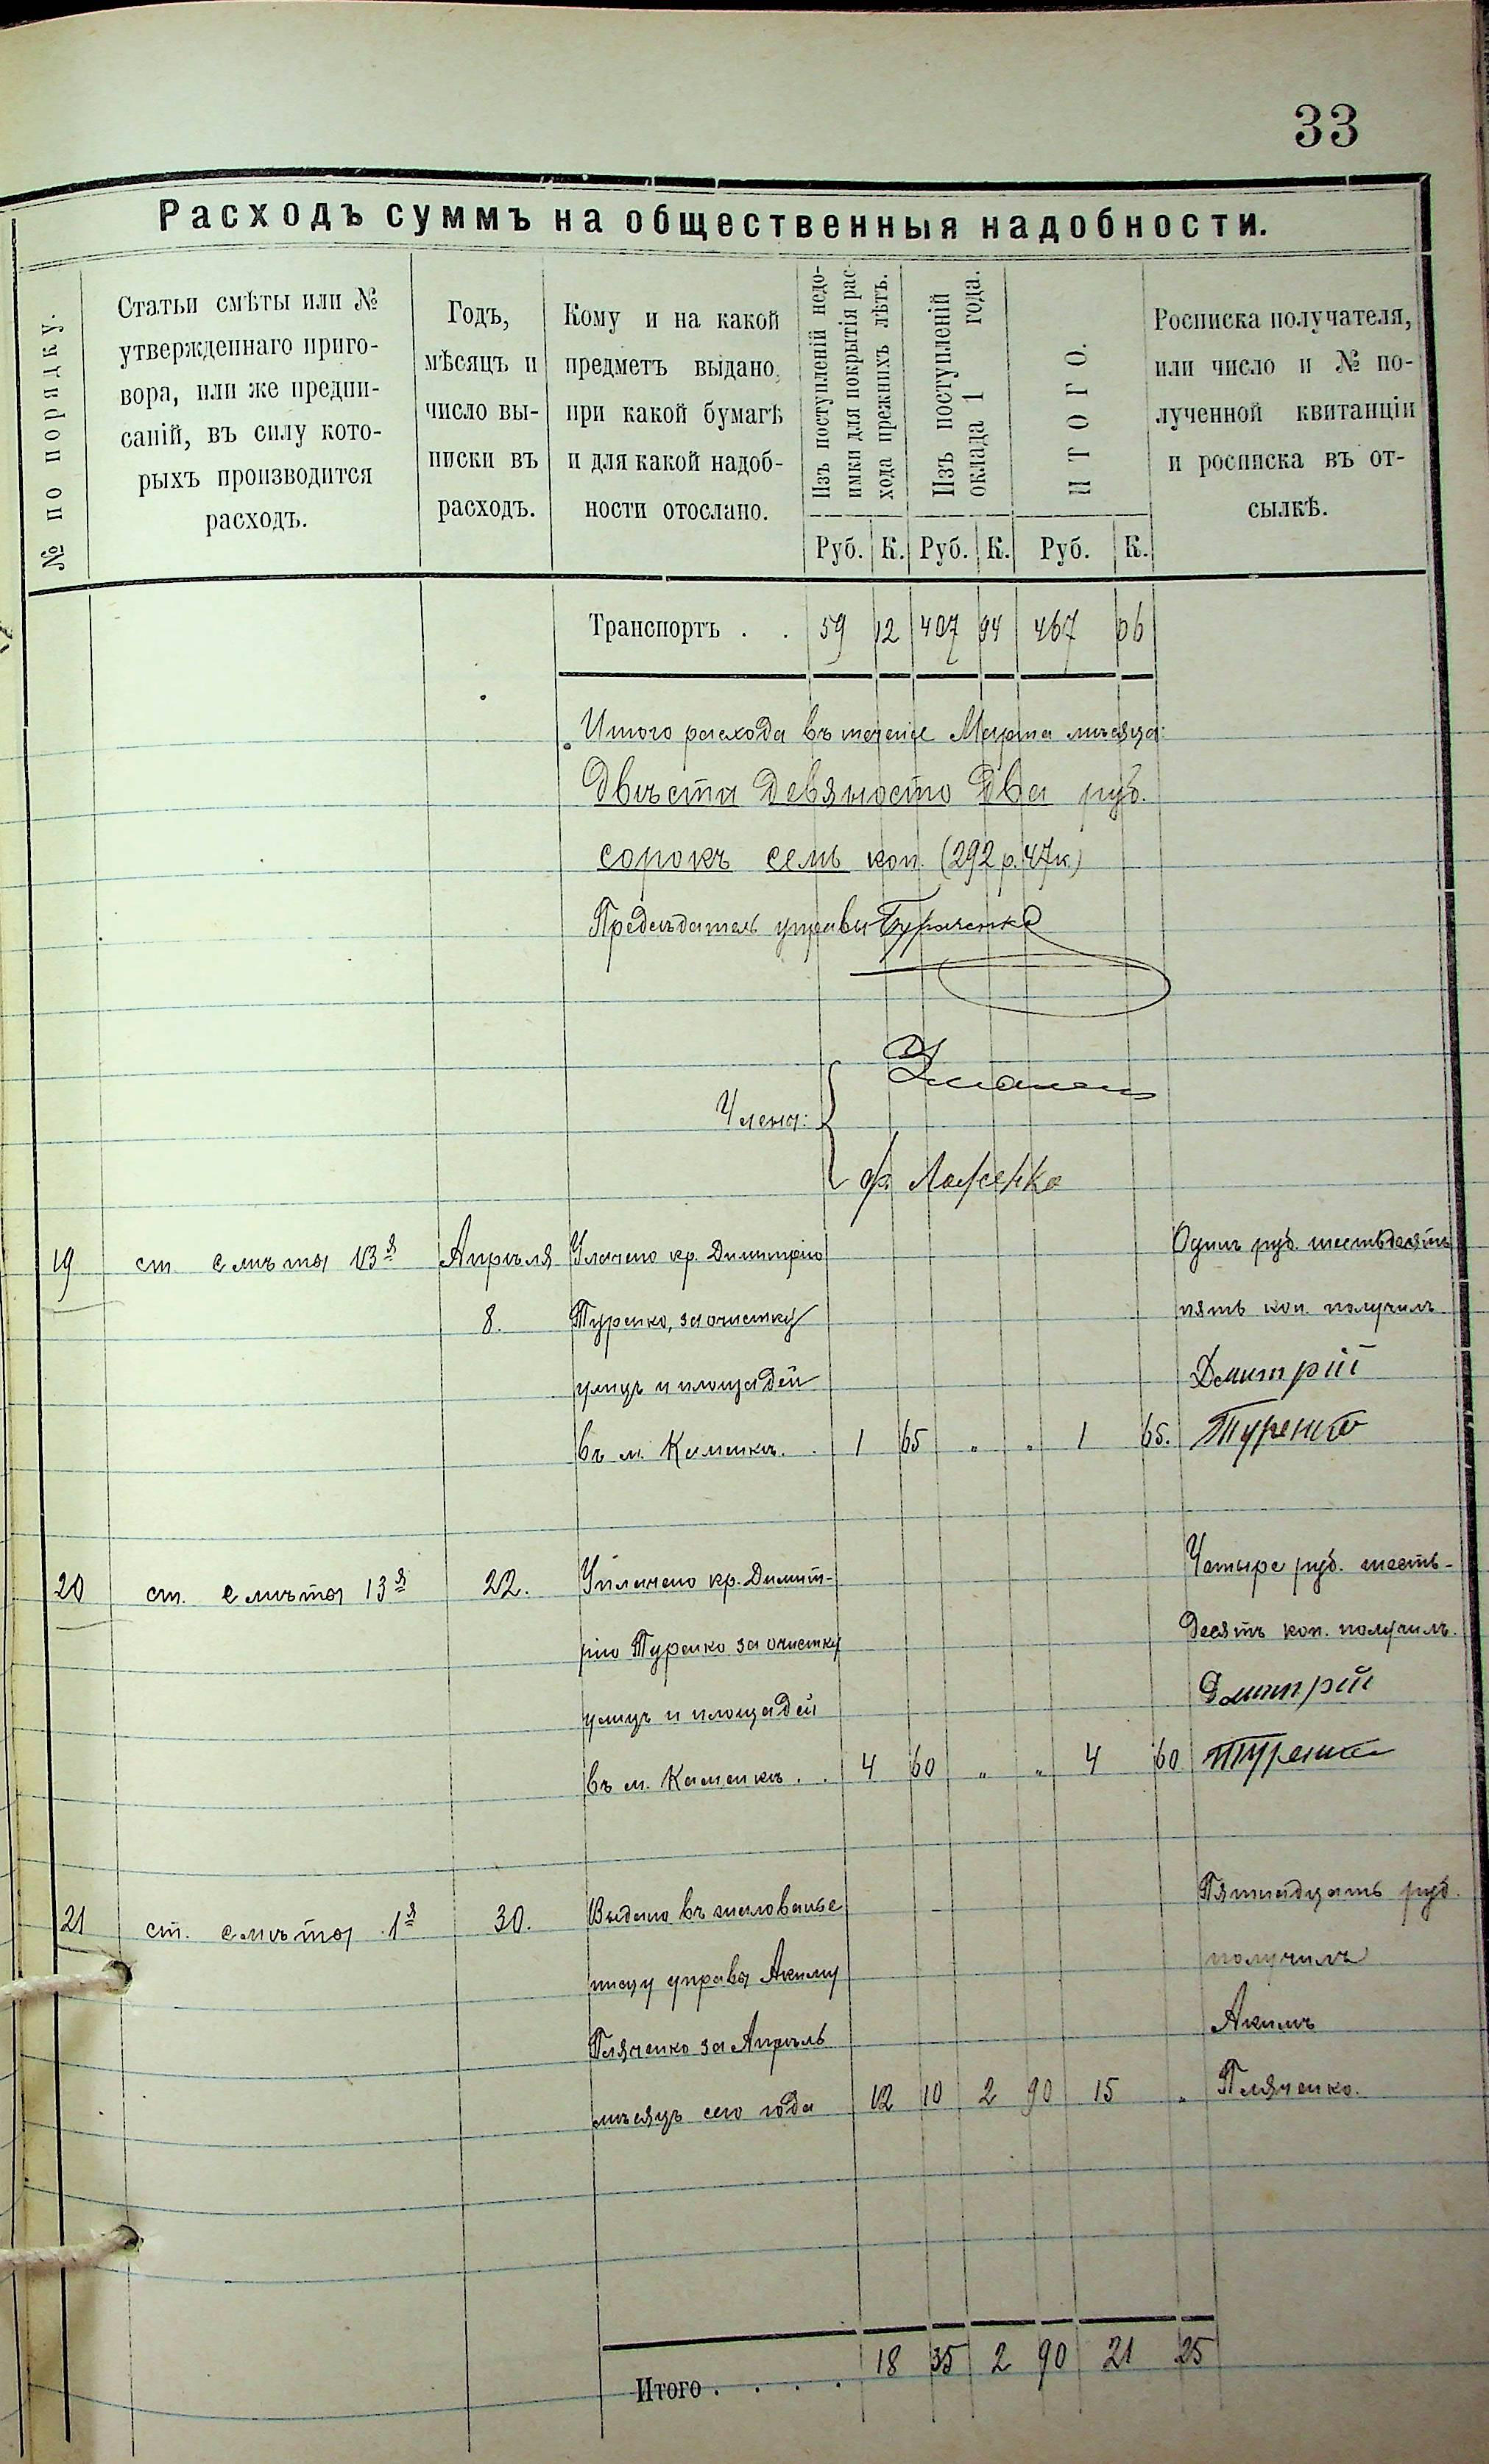 33
Расходъ суммъ на общественныя надобности.
№ по порядку.
Статьи смѣты или №
утвержденнаго приго-
вора, или же предпи-
саній, въ силу кото-
рыхъ производится
расходъ.
Годъ,
мѣсяцъ и
число вы-
писки въ
расходъ.
Кому и на какой
предметъ выдано,
при какой бумагѣ
и для какой надоб-
ности отослано.
Изъ поступленій недо-
имки для покрытія рас-
хода прежнихъ лѣтъ.
Изъ поступленій
оклада 1 года.
ИТОГО.
Росписка получателя,
или число и № по-
лученной квитанціи
и росписка въ от-
сылкѣ.
Руб. К. Руб. К. Руб. К.
Транспортъ . . 59 12 407 94 467 06
Итого расхода въ теченіе Марта мѣсяца:
Двѣсти девяносто два руб.
сорокъ семь коп. (292 р. 47 к.)
Предсѣдатель управы
Члены:
19 ст смѣты 13я Апрѣля Уплачено кр. Димитрію Одинъ руб. шестьдесятъ
8. Туренко, за очистку пять коп. получилъ
улицъ и площадей Дмитрій
въ м. Каменкѣ. . 1 65 „ „ 1 65. Туренко
20 ст. смѣты 13я 22. Уплачено кр. Димит- Четыре руб. шесть-
рію Туренко за очистку десятъ коп. получилъ.
улицъ и площадей Дмитрій
въ м. Каменкѣ . . 4 60 „ „ 4 60 Туренко
21 ст. смѣты 1я 30. Выдано въ жалованье Пятнадцать руб.
писцу управы Акиму получилъ
Пляченко за Апрѣль Акимъ
мѣсяцъ сего года 12 10 2 90 15 „ Пляченко.
Итого . . . . 18 35 2 90 21 25